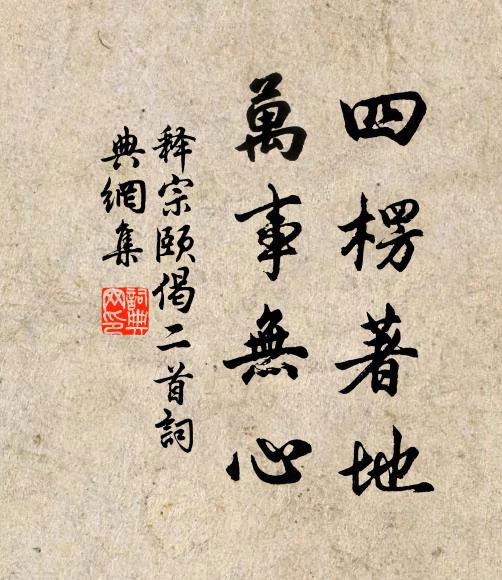 四楞著地
萬事無心
释宗頤偈二首詞
典網集
詞典网印